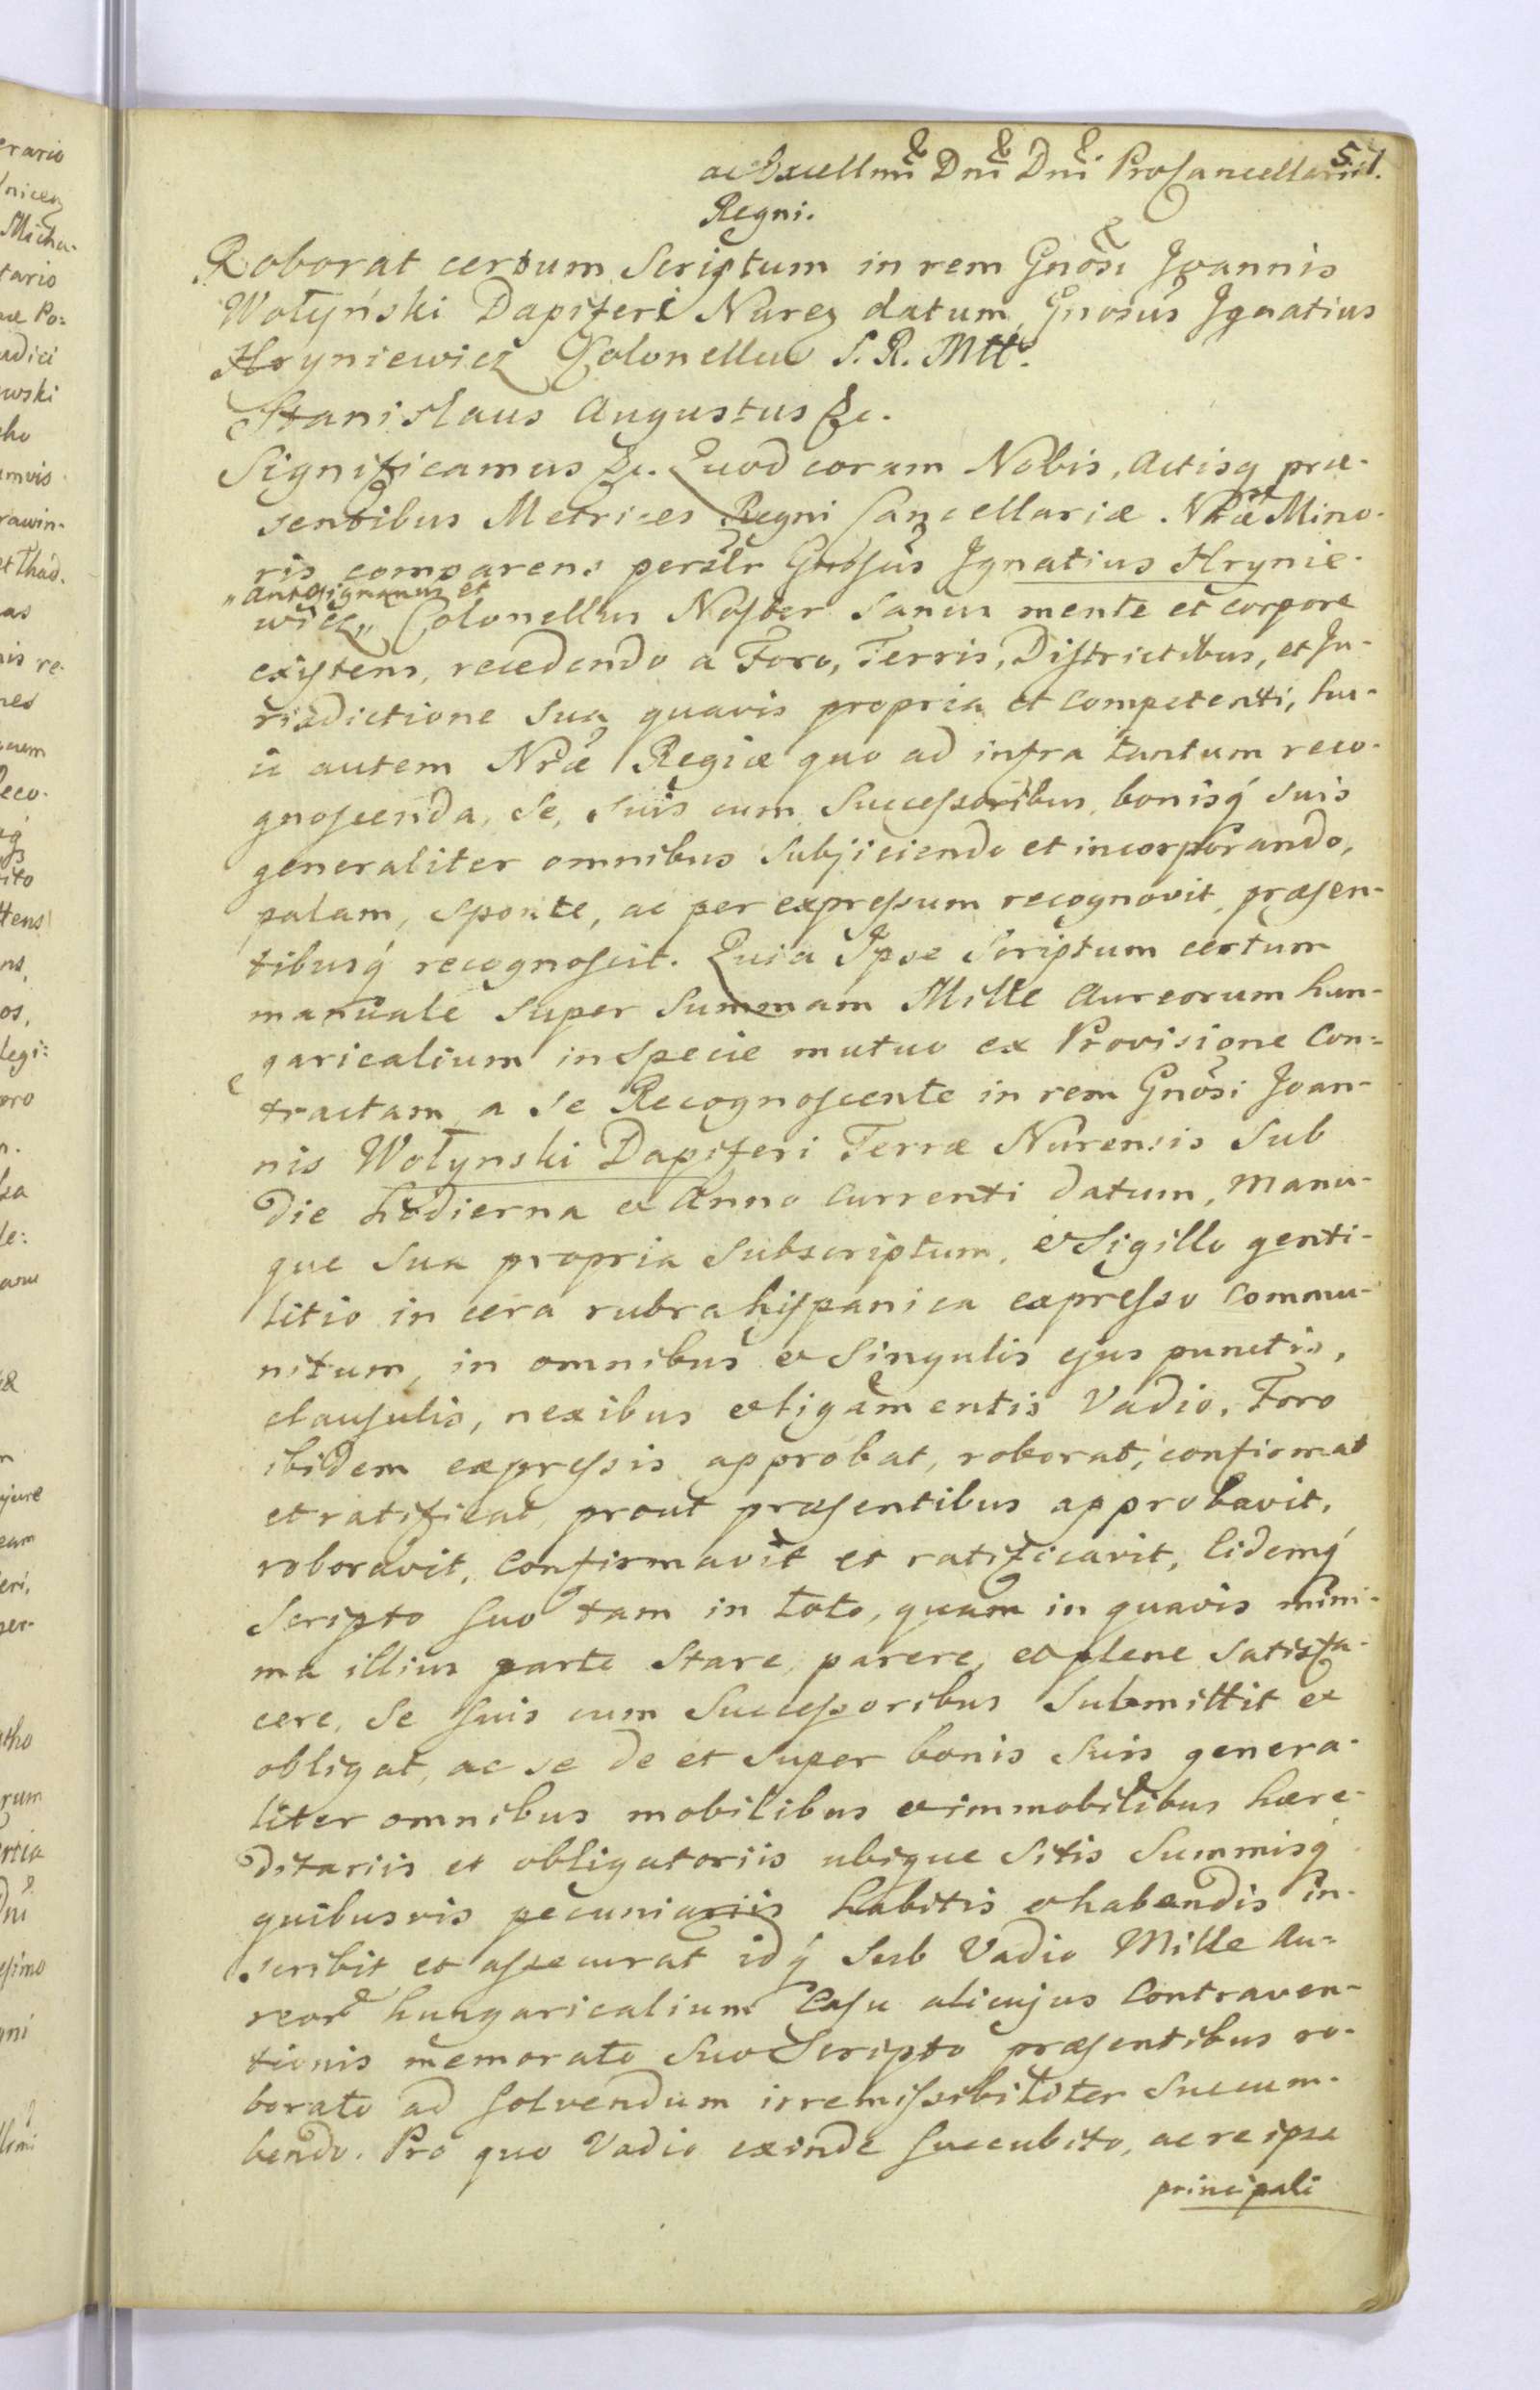 51.
ac Excellmi Dni Dni ProCancellarii
Regni.
Roborat certum Scriptum in rem Gnosi Joannis
Wołyński Dapiferi Nurez datum, Gnosus Ignatius
Hryniewicz Colonellus S. R. Mtt.
Stanislaus Augustus &c.
Significamus &c. Quod coram Nobis, Actisq præ-
sentibus Metrices Regni Cancellariæ Nræ Mino-
ris comparens persłr Gnosus Ignatius Hrynie-
„Antesignanus et
wicz„ Colonellus Noster Sanus mente et corpore
existens, recedendo a Foro, Terris, Districtibus, et Ju-
risdictione Sua quavis propria et competenti, hu-
ic autem Nræ Regiæ quo ad infra tantum reco-
gnoscenda, Se, Suis cum Successoribus, bonisq́ Suis
generaliter omnibus Subjiciendo et incorporando,
palam, Sponte, ac per expressum recognovit, præsen-
tibusq́ recognoscit. Quia Ipse Scriptum certum
manuale Super Summam Mille Aureorum hun-
garicalium in Specie mutuo ex Provisione Con-
tractam, a Se Recognoscente in rem Gnosi Joan-
nis Wołynski Dapiferi Terræ Nurensis Sub
Die hodierna et Anno Currenti datum, Manu-
que Sua propria Subscriptum, et Sigillo genti-
litio in cera rubra hispanica expresso Commu-
nitum, in omnibus et Singulis ejus punctis,
clausulis, nexibus et ligamentis Vadio, Foro
ibidem expressis approbat, roborat, confirmat
et ratificat, prout præsentibus approbavit,
roboravit, Confirmavit et ratificavit, Eidemq́
Scripto Suo tam in toto, quam in quavis mini-
ma illius parte Stare, parere, et plene Satisfa-
cere, Se Suis cum Successoribus Submittit et
obligat, ac se de et Super bonis Suis genera-
liter omnibus mobilibus et immobilibus hære-
ditariis et obligatoriis ubique Sitis Summisq́
quibusvis pecuniariis habitis et habendis in-
scribit et assecurat idq́ Sub Vadio Mille Au-
reor hungaricalium Casu alicujus Contraven-
tionis memorato Suo Scripto præsentibus ro-
borato ad Solvendum irremissibiliter Succum-
bendo. Pro quo Vadio exinde Succubito, ac re ipsa
principali